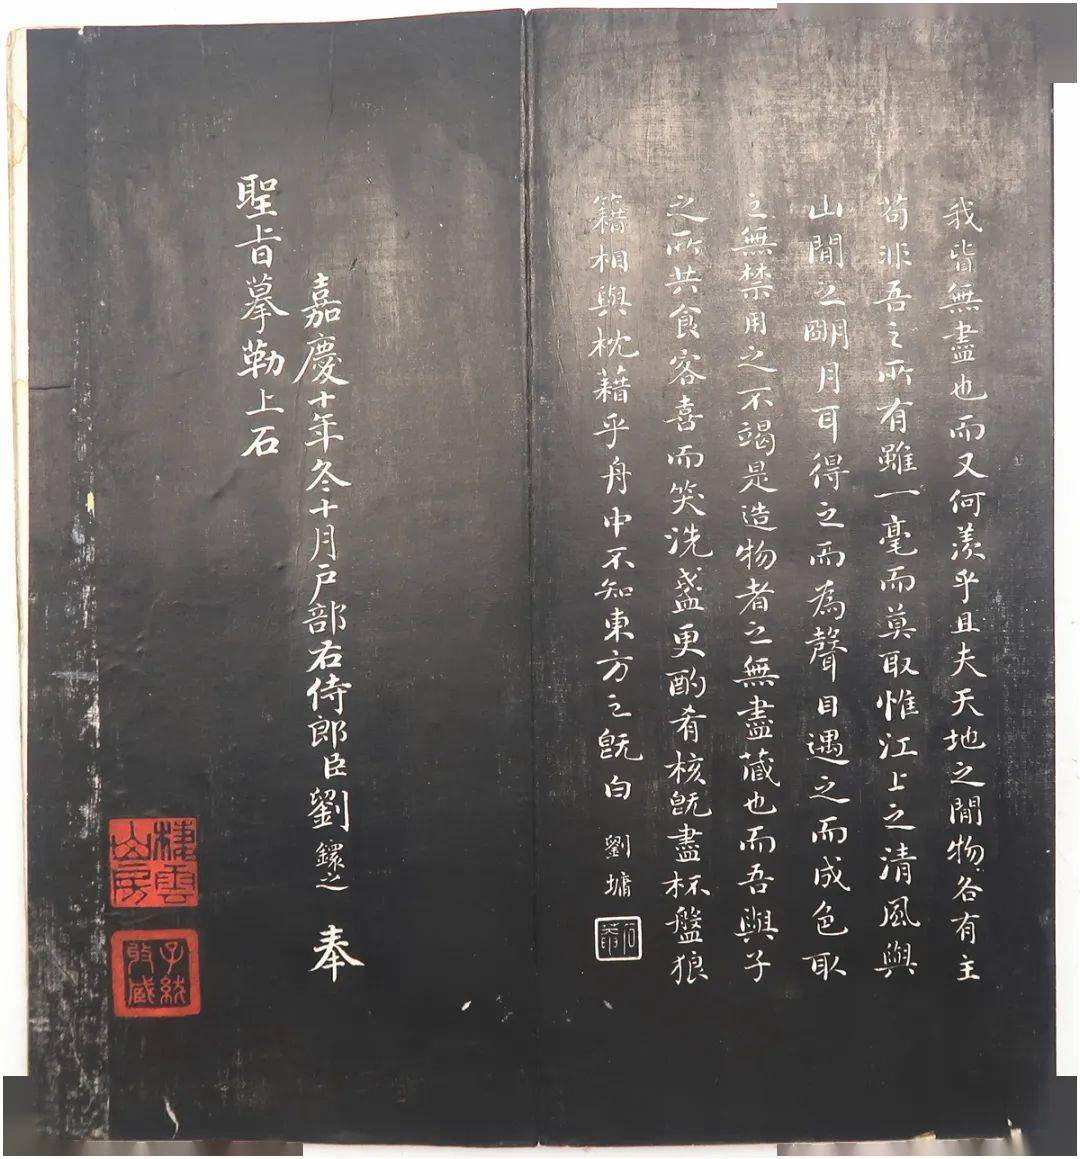 我皆無盡也而又何羨乎且夫天地之閒物各有主
苟非吾之所有雖一毫而莫取惟江上之清風與
山閒之朙月耳得之而為聲目遇之而成色取
之無禁用之不竭是造物者之無盡藏也而吾與子
之所共食客喜而笑洗盞更酌肴核既盡杯盤狼
籍相與枕藉乎舟中不知東方之既白 劉墉
石菴
嘉慶十年冬十月戶部右侍郎臣劉鐶之 奉
聖旨摹勒上石
棲雲山房